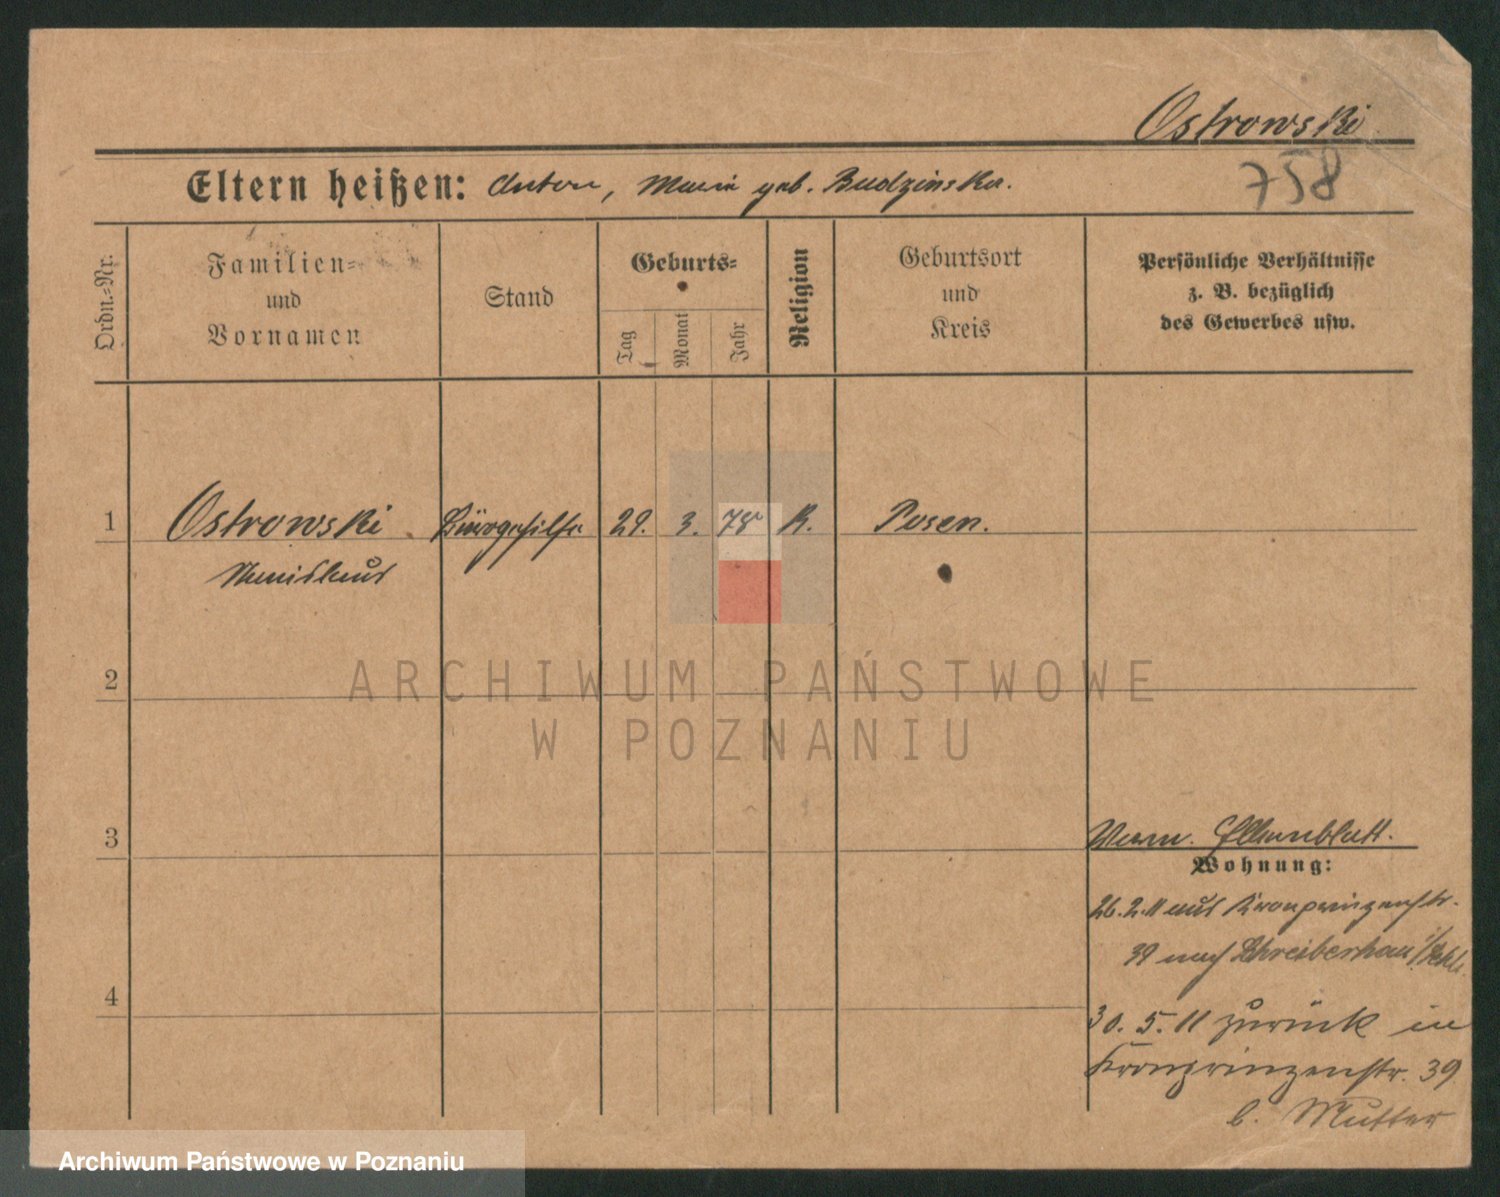 Ostrowski
758
Eltern heißen: Anton, Maria geb. Budzinska.
Ordn.-Nr.
Familien-
und
Vornamen
Stand
Geburts-
Tag
Monat
Jahr
Religion
Geburtsort
und
Kreis
Persönliche Verhältnisse
z. B. bezüglich
des Gewerbes usw.
1
Ostrowski
Bürogehilfe
29. 3. 78
K.
Posen.
2
ARCHIWUM PAŃSTWOWE
W POZNANIU
3
Elternblatt.
Wohnung:
26.2.11 aus Kronprinzenstr.
39 nach Schreiberhau i/Schl.
4
30. 5. 11 zurück in
Kronprinzenstr. 39
b. Mutter
Archiwum Państwowe w Poznaniu